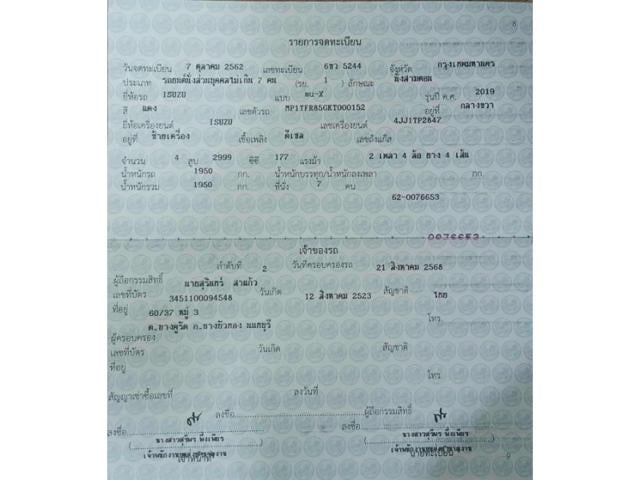 8
รายการจดทะเบียน
วันจดทะเบียน 7 ตุลาคม 2562 เลขทะเบียน 6ขว 5244 จังหวัด กรุงเทพมหานคร
ประเภท รถยนต์นั่งส่วนบุคคลไม่เกิน 7 คน (รย. 1 ) ลักษณะ นั่งสามตอน
ยี่ห้อรถ ISUZU แบบ mu-X รุ่นปี ค.ศ. 2019
สี แดง เลขตัวรถ MP1TFR85GKT000152 อยู่ที่ กลางขวา
ยี่ห้อเครื่องยนต์ ISUZU เลขเครื่องยนต์ 4JJ1TP2847
อยู่ที่ ซ้ายเครื่อง เชื้อเพลิง ดีเซล เลขถังแก๊ส
จำนวน 4 สูบ 2999 ซีซี 177 แรงม้า 2 เพลา 4 ล้อ ยาง 4 เส้น
น้ำหนักรถ 1950 กก. น้ำหนักบรรทุก/น้ำหนักลงเพลา กก.
น้ำหนักรวม 1950 กก. ที่นั่ง 7 คน
62-0076653
0076653
เจ้าของรถ
ลำดับที่ 2 วันที่ครอบครองรถ 21 สิงหาคม 2568
ผู้ถือกรรมสิทธิ์ นายสุรินทร์ สาแก้ว
เลขที่บัตร 3451100094548 วันเกิด 12 สิงหาคม 2523 สัญชาติ ไทย
ที่อยู่ 60/37 หมู่ 3 โทร.
ต.บางคูรัด อ.บางบัวทอง นนทบุรี
ผู้ครอบครอง
เลขที่บัตร วันเกิด สัญชาติ
ที่อยู่ โทร.
สัญญาเช่าซื้อเลขที่ ลงวันที่
ลงชื่อ ผู้ถือกรรมสิทธิ์
ลงชื่อ ลงชื่อ
เจ้าหน้าที่ นายทะเบียน
9